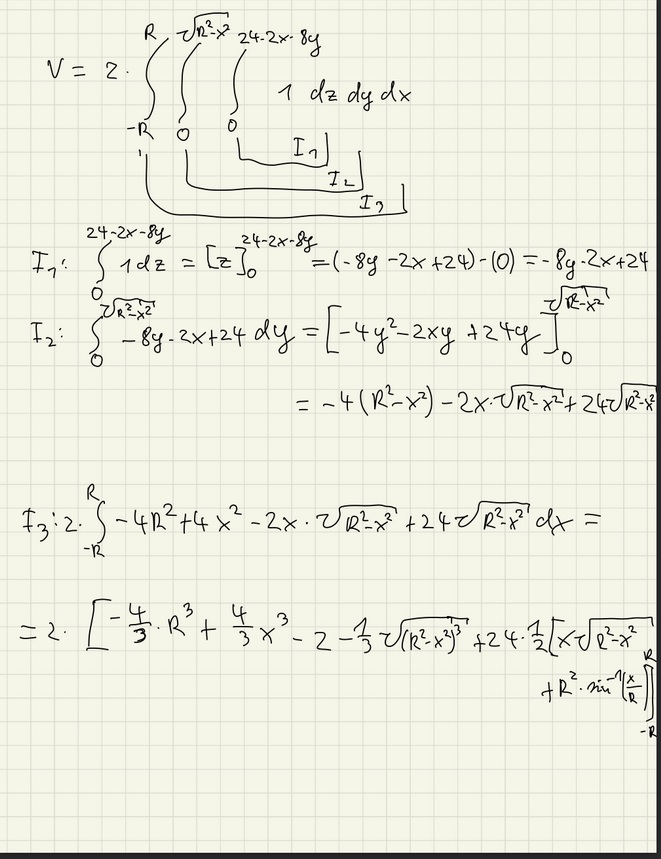 V = 2 · ∫_{-R}^{R} ∫_0^{√(R²-x²)} ∫_0^{24-2x-8y} 1 dz dy dx
I₁
I₂
I₃
I₁: ∫_0^{24-2x-8y} 1 dz = [z]_0^{24-2x-8y} = (-8y-2x+24)-(0) = -8y-2x+24
I₂: ∫_0^{√(R²-x²)} -8y-2x+24 dy = [-4y²-2xy+24y]_0^{√(R²-x²)}
= -4(R²-x²)-2x·√(R²-x²)+24√(R²-x²)
I₃: 2·∫_{-R}^{R} -4R²+4x²-2x·√(R²-x²)+24√(R²-x²) dx =
= 2·[-4/3·R³+4/3x³-2-1/3√((R²-x²)³)+24·1/2[x√(R²-x²)
+R²·sin⁻¹(x/R)]]_{-R}^{R}